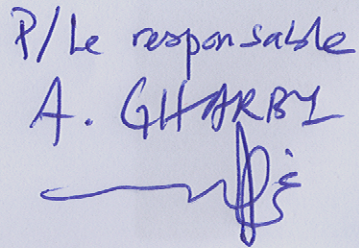 P/Le responsable
A. GHARBY